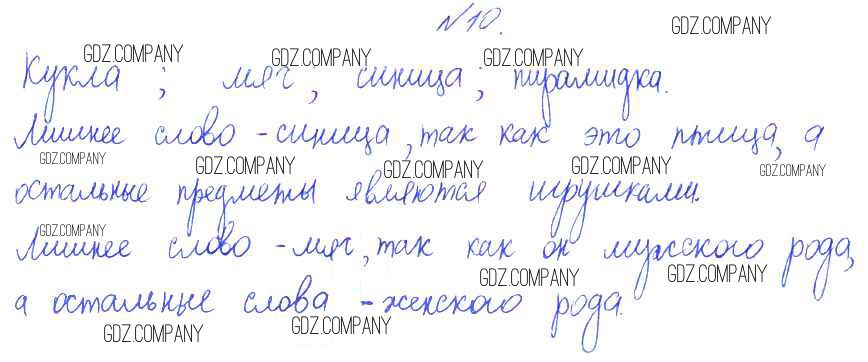 №10.
GDZ.COMPANY
GDZ.COMPANY GDZ.COMPANY GDZ.COMPANY
Кукла; мяч, синица; пирамидка.
Лишнее слово - синица, так как это птица, а
GDZ.COMPANY GDZ.COMPANY GDZ.COMPANY GDZ.COMPANY GDZ.COMPANY
остальные предметы являются игрушками.
GDZ.COMPANY
Лишнее слово - мяч, так как он мужского рода,
GDZ.COMPANY GDZ.COMPANY
а остальные слова - женского рода.
GDZ.COMPANY GDZ.COMPANY